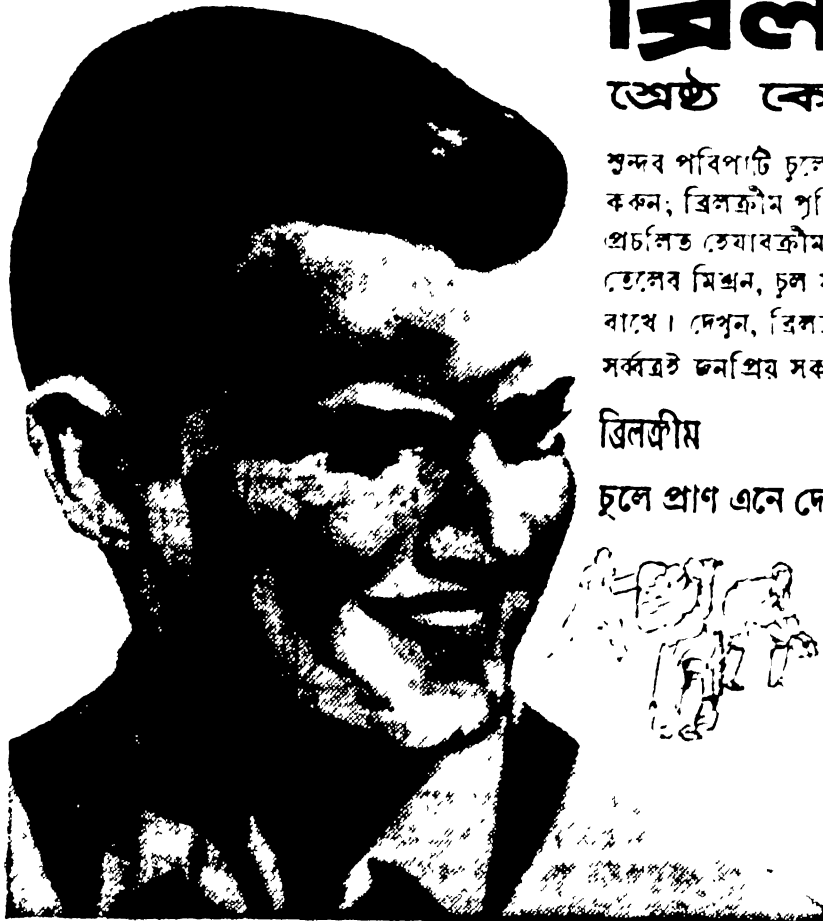 ব্রিল
শ্রেষ্ঠ কে
সুন্দব পবিপাটি চুলে
ককন; ব্রিলক্রীম পৃি
প্রচলিত হেযাবক্রীম
তেলেব মিশ্রন, চুল
বাখে। দেখুন, ব্রিল
সর্ব্বত্রই জনপ্রিয় সক
ব্রিলক্রীম
চুলে প্রাণ এনে দে